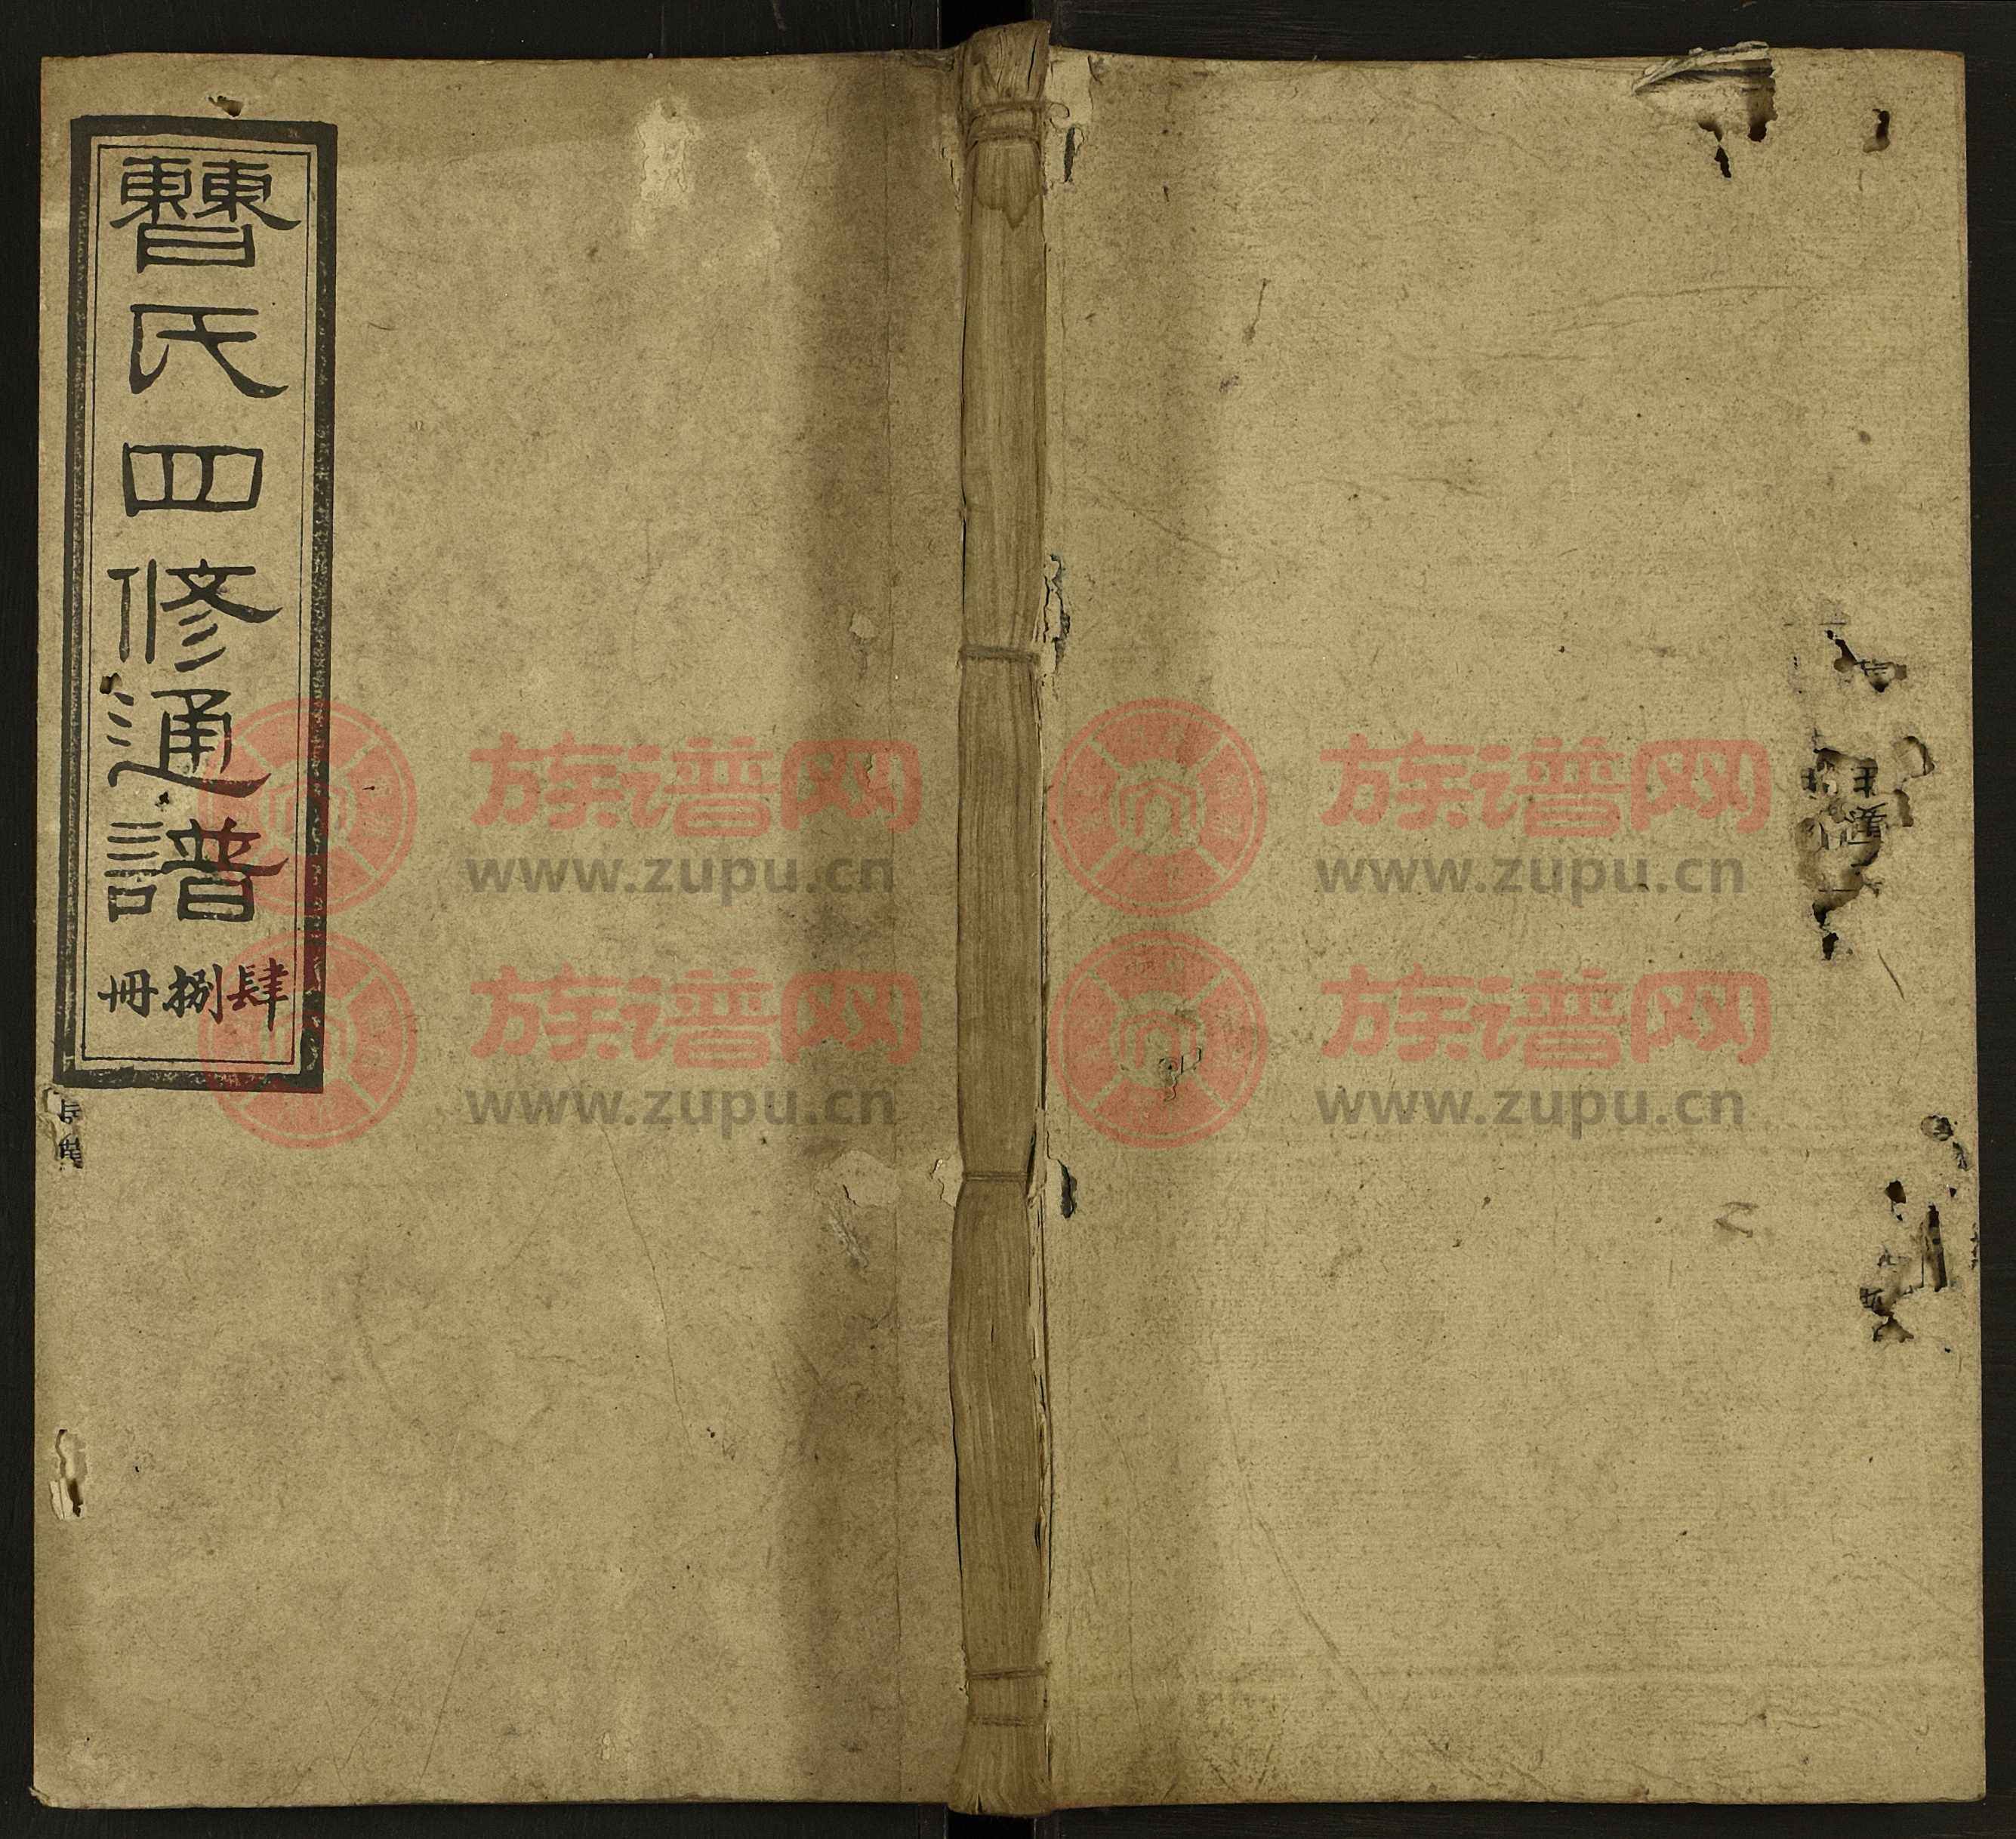 曹氏四修通譜
肆捌冊
族谱网
www.zupu.cn
族谱网
www.zupu.cn
族谱网
www.zupu.cn
族谱网
www.zupu.cn